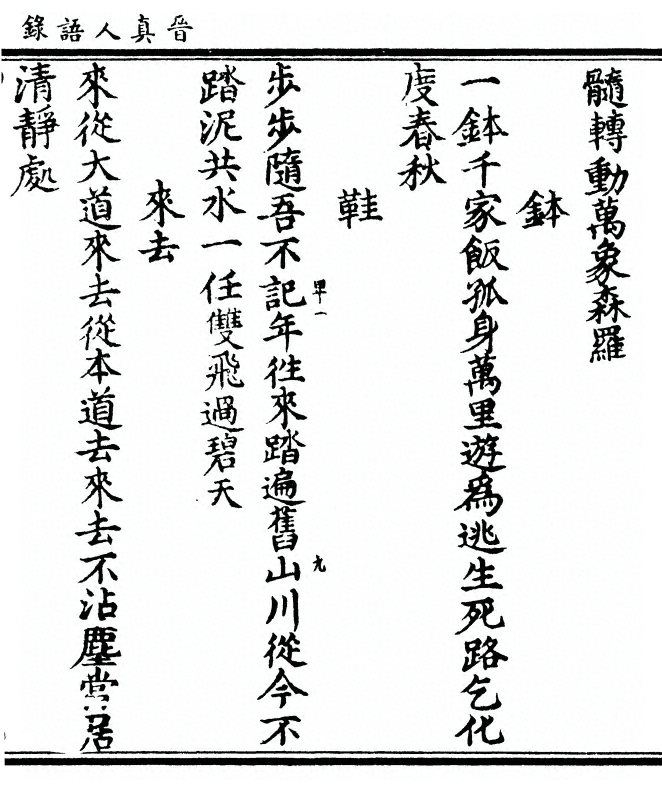 晉真人語錄
髓轉動萬象森羅
鉢
一鉢千家飯孤身萬里遊為逃生死路乞化
度春秋
鞋
步步隨吾不記年徃來踏遍舊山川從今不
畢一
九
踏泥共水一任雙飛過碧天
來去
來從大道來去從本道去來去不沾塵常居
清靜處